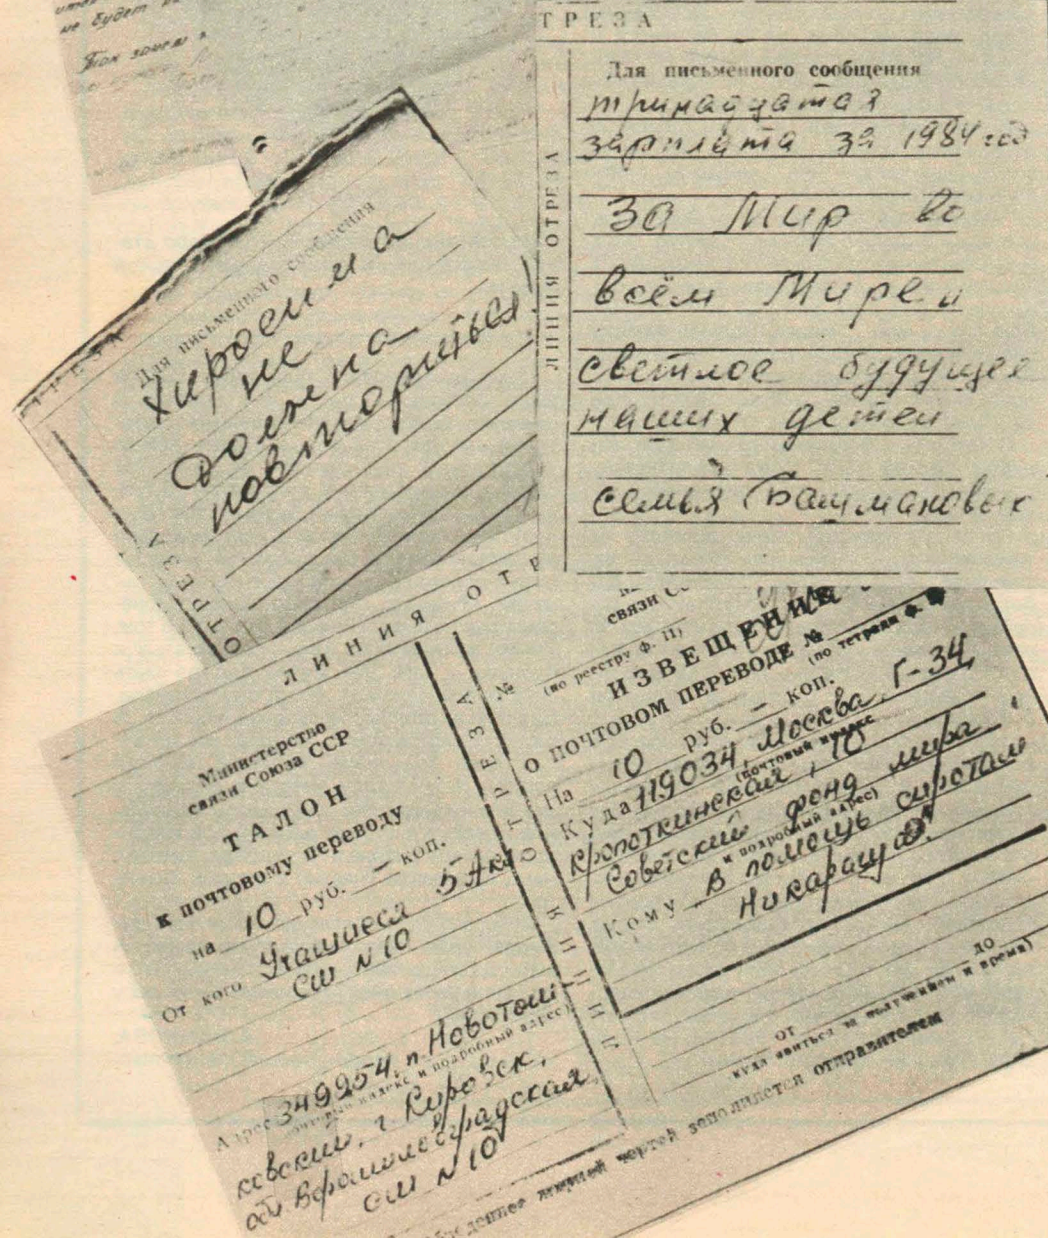 не будет
Так зачем
ОТРЕЗА
Для письменного сообщения
тринадцатая
зарплата за 1984 год
За Мир во
всём Мире и
светлое будущее
наших детей
семья Башмановых
ЛИНИЯ ОТРЕЗА
Для письменного сообщения
Хиросима
не
должна
повториться!
ОТРЕЗА
ЛИНИЯ ОТР
Министерство
связи Союза ССР
ТАЛОН
к почтовому переводу
на 10 руб. — коп.
От кого Учащиеся 5А кл
СШ №10
Адрес 349254, п. Новотош
индекс и подробный адрес)
ковский, г. Кировск,
обл Ворошиловградская
СШ №10
ЛИНИЯ ОТРЕЗА
связи Со
№ (по реестру ф. 11)
ИЗВЕЩЕНИЕ
О ПОЧТОВОМ ПЕРЕВОДЕ №
(по тетради ф.
На 10 руб. — коп.
Куда 119034, Москва, Г-34,
(почтовый индекс
Кропоткинская, 10
Советский фонд мира
и подробный адрес)
Кому В помощь сиротам
Никарагуа.
от до
куда явиться за получением и время)
чертой заполняется отправителем